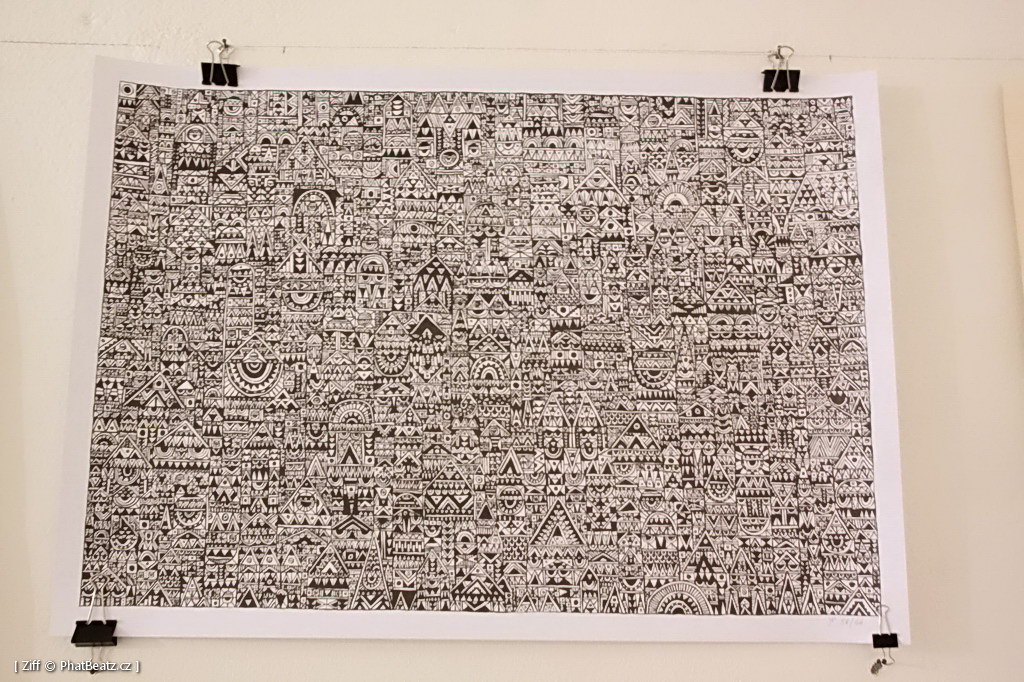 [ Ziff © PhatBeatz.cz ]